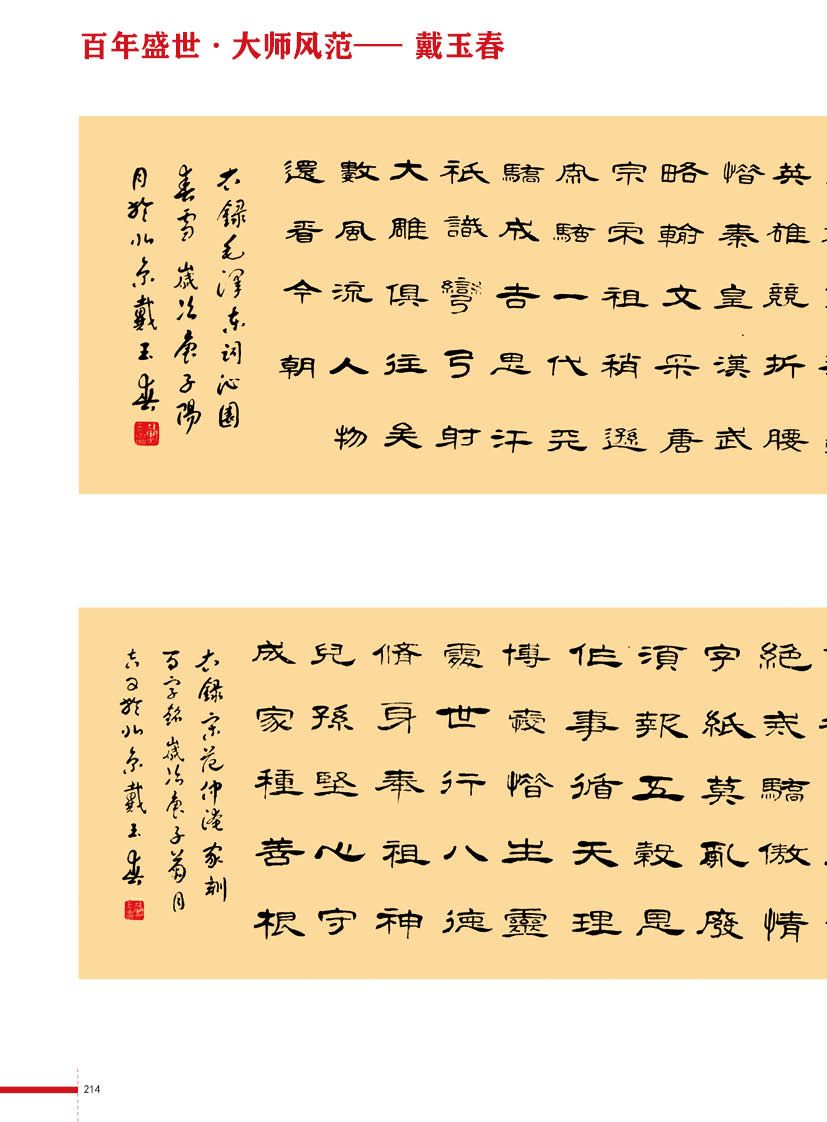 百年盛世·大师风范—— 戴玉春
英雄競折腰
惜秦皇漢武
略輸文采唐
宗宋祖稍遜
風騷一代天
驕成吉思汗
祇識彎弓射
大雕俱往矣
數風流人物
還看今朝
右錄毛澤東詞沁園
春雪歲次庚子陽
月於北京戴玉春
絕戒驕傲情
字紙莫亂廢
須報五穀恩
作事循天理
博愛惜生靈
處世行八德
脩身奉祖神
兒孫堅心守
成家種善根
右錄宋范仲淹家訓
百字銘歲次庚子菊月
吉日於北京戴玉春
214